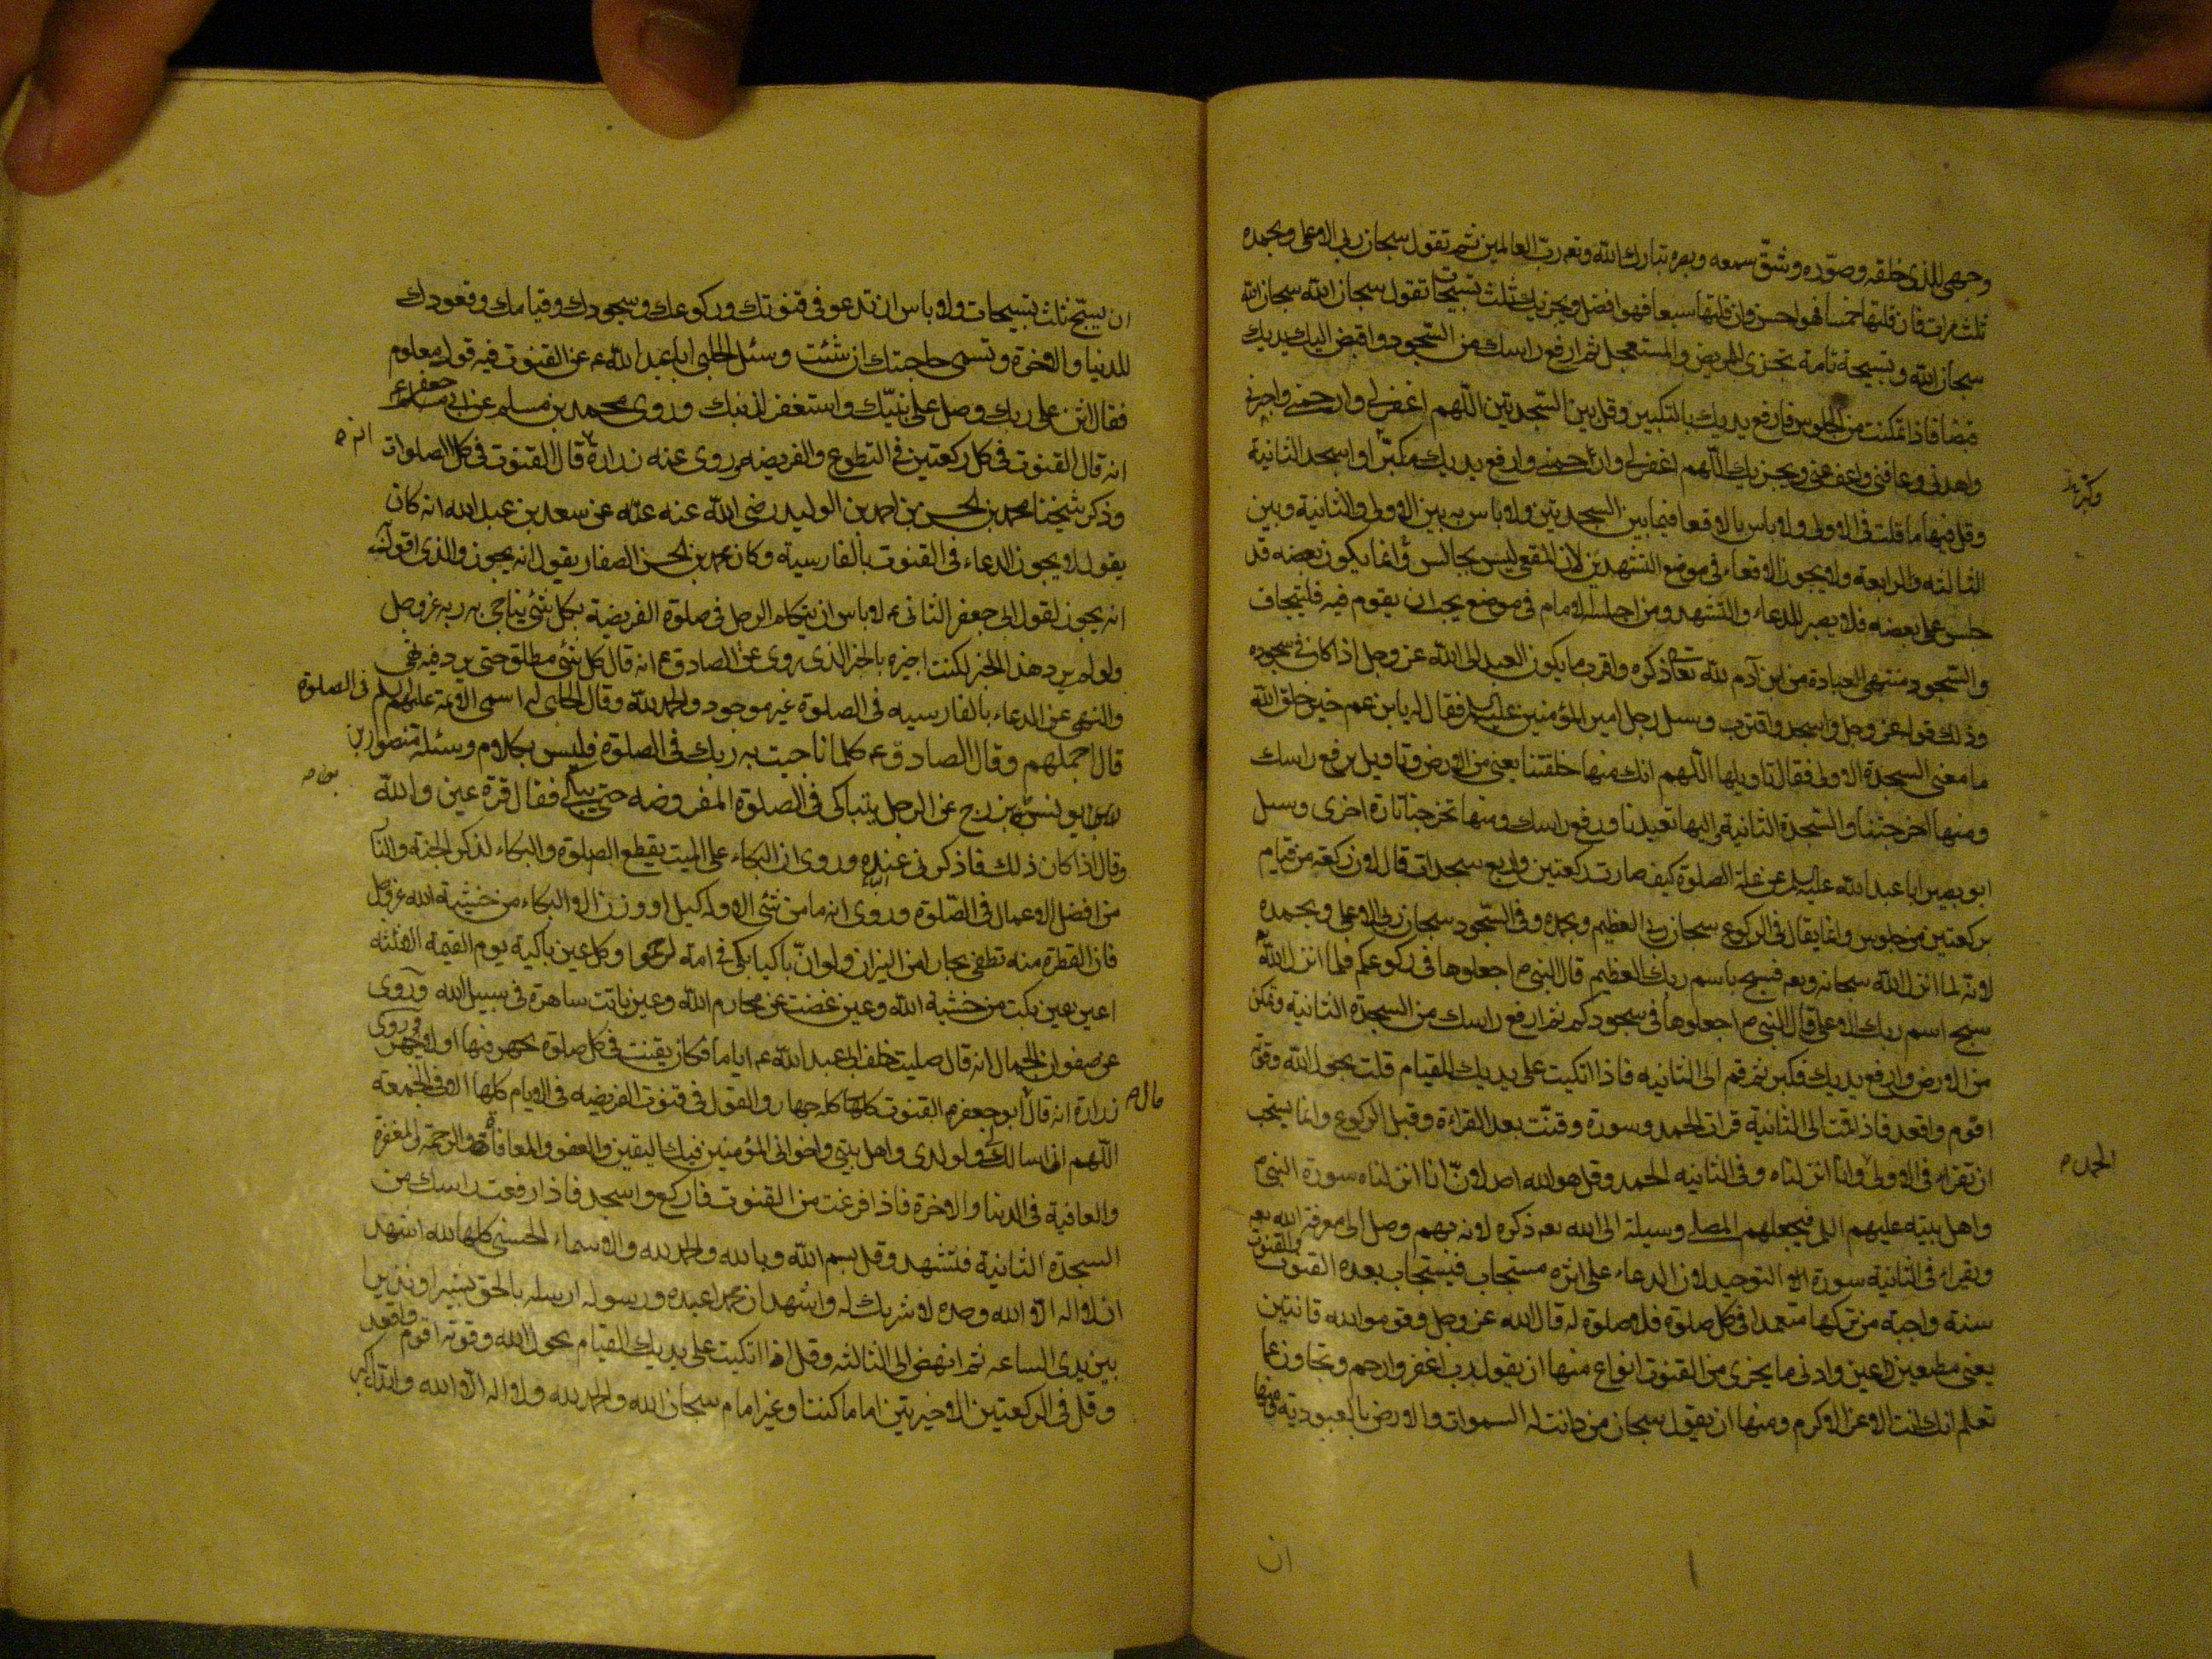 وجهي للذي خلقه وصوّره وشقّ سمعه وبصره تبارك الله وتعه ربّ العالمين ثم تقول سبحان ربي الاعلى وبحمده
ثلث مرات فان قلتها خمسا فهو احسن وان قلتها سبعا فهو افضل ويجزيك ثلث تسبيحات تقول سبحان الله سبحان الله
سبحان الله وتسبيحة تامة تجزى للمريض والمستعجل ثم ارفع راسك من السّجود واقبض اليك يديك
قبضا فاذا تمكنت من الجلوس فارفع يديك بالتكبير وقل بين السّجدتين اللّهم اغفر لي وارحمني واجرني
واهدني وعافني واعف عني ويجزيك اللّهم اغفر لي وارحمني وارفع يديك وكبّر واسجد الثانية
وقل فيها ما قلت في الاولى ولا باس بالاقعاء فيما بين السجدتين ولا باس به بين الاولى والثانية وبين
الثالثه والرابعة ولا يجوز الاقعاء في موضع التشهدين لان المقعي ليس بجالس وانما يكون بعضه قد
جلس على بعضه فلا يصبر للدعاء والتشهد ومن اجلسه الامام في موضع يجب ان يقوم فيه فليتجاف
والسّجود منتهى العبادة من ابن آدم لله تعا ذكره واقرب ما يكون العبد الى الله عز وجل اذا كان في سجوده
وذلك قوله عز وجل واسجد واقترب وسئل رجل امير المؤمنين عليه السلم فقال له يا بن عم خير خلق الله
ما معنى السجدة الاولى فقال تاويلها اللّهم انك منها خلقتنا يعني من الارض وتاويل رفع راسك
ومنها اخرجتنا والسّجدة الثانية واليها تعيدنا ورفع راسك ومنها تخرجنا تارة اخرى وسئل
ابو بصير ابا عبد الله عليه السلم عن علة الصلوة كيف صارت ركعتين واربع سجدات قال لان ركعة من قيام
بركعتين من جلوس وانما يقال في الركوع سبحان ربي العظيم وبحمده وفي السّجود سبحان ربي الاعلى وبحمده
لانه لما انزل الله سبحانه وتعه فسبح باسم ربك العظيم قال النبي ص اجعلوها في ركوعكم فلما انزل الله
سبح اسم ربك الاعلى قال النبي ص اجعلوها في سجودكم ثم ارفع راسك من السجدة الثانية وتمكن
من الارض وارفع يديك وكبر ثم قم الى الثانيه فاذا اتكيت على يديك للقيام قلت بحول الله وقوته
اقوم واقعد فاذا قمت الى الثانية قرات الحمد وسورة وقنتّ بعد القراءة وقبل الركوع وانما يستحب
ان تقراء في الاولى وانا انزلناه وفي الثانيه الحمد وقل هو الله احد لانّ انا انزلناه سورة النبي ص
الحمد ص
واهل بيته عليهم السلم فيجعلهم المصلي وسيلة الى الله تعه ذكره لانه بهم وصل الى معرفة الله تعه
ويقراء في الثانية سورة التوحيد لان الدعاء على اثره مستجاب فيستجاب بعده القنوت والقنوت
سنة واجبة من تركها متعمدا في كل صلوة فلا صلوة له قال الله عز وجل وقوموا لله قانتين
يعني مطيعين داعين وادنى ما يجزى من القنوت انواع منها ان يقول رب اغفر وارحم وتجاوز عما
تعلم انك انت الاعز الاكرم ومنها ان يقول سبحان من دانت له السموات والارض بالعبودية ومنها
ان
ان يسبّح ثلث تسبيحات ولا باس ان تدعو في قنوتك وركوعك وسجودك وقيامك وقعودك
للدنيا والاخرة وتسمى حاجتك ان شئت وسئل الحلبي ابا عبد الله ع عن القنوت فيه قول معلوم
فقال اثن على ربك وصل على نبيّك واستغفر لذنبك وروى محمد بن مسلم عن ابي جعفر ع
انه قال القنوت في كل ركعتين في التطوع والفريضه وروى عنه زرارة انه ص قال القنوت في كل الصلوات
وذكر شيخنا محمد بن الحسن بن احمد بن الوليد رضي الله عنه عن سعد بن عبد الله انه كان
يقول لا يجوز الدعاء في القنوت بالفارسية وكان محمد بن الحسن الصفار يقول انه يجوز والذي اقول به
انه يجوز لقول ابي جعفر الثاني ع لا باس ان يتكلم الرجل في صلوة الفريضة بكل شئ يناجى به ربه عز وجل
ولو لم يرد هذا الخبر لكنت اجيزه بالخبر الذي روى عن الصادق ع انه قال كل شئ مطلق حتى يرد فيه نهي
والنهي عن الدعاء بالفارسيه في الصلوة غير موجود والحمد لله وقال الحلبي له اسمي الائمة عليهم السلم في الصلوة
قال اجملهم وقال الصادق ع كلما ناجيت به ربك في الصلوة فليس بكلام وسئله منصور بن
يونس بزرج عن الرجل يتباكى في الصلوة المفروضه حتى يبكى فقال قرة عين والله
وقال اذا كان ذلك فاذكرني عنده وروى ان البكاء على الميت يقطع الصلوة والبكاء لذكر الجنة والنار
من افضل الاعمال في الصّلوة وروى انه ما من شئ الا وله كيل او وزن الا البكاء من خشية الله عز وجل
فان القطرة منه تطفى بحارا من النيران ولو انّ باكيا بكى في امة لرحموا وكل عين باكية يوم القيمة الا ثلثه
اعين عين بكت من خشية الله وعين غضت عن محارم الله وعين باتت ساهرة في سبيل الله وروى
عن صفوان الجمال انه قال صليت خلف ابي عبد الله ع اياما فكان يقنت في كل صلوة يجهر فيها او لا يجهر وروى
زرارة انه قال قال ابو جعفر ع القنوت كله جهار والقول في قنوت الفريضه في الايام كلها الا في الجمعة
اللّهم اني اسالك لي ولوالدي ولولدي واهل بيتي واخواني المؤمنين فيك اليقين والعفو والمعافاة والرحمة والمغفرة
والعافية في الدنيا والاخرة فاذا فرغت من القنوت فاركع واسجد فاذا رفعت راسك من
السجدة الثانية فتشهد وقل بسم الله وبالله والحمد لله والاسماء الحسنى كلها لله اشهد
ان لا اله الا الله وحده لا شريك له واشهد ان محمدا عبده ورسوله ارسله بالحق بشيرا ونذيرا
بين يدي الساعه ثم انهض الى الثالثه وقل اذا اتكيت على يديك للقيام بحول الله وقوته اقوم واقعد
وقل في الركعتين الاخيرتين اماما كنت او غير امام سبحان الله والحمد لله ولا اله الا الله والله اكبر